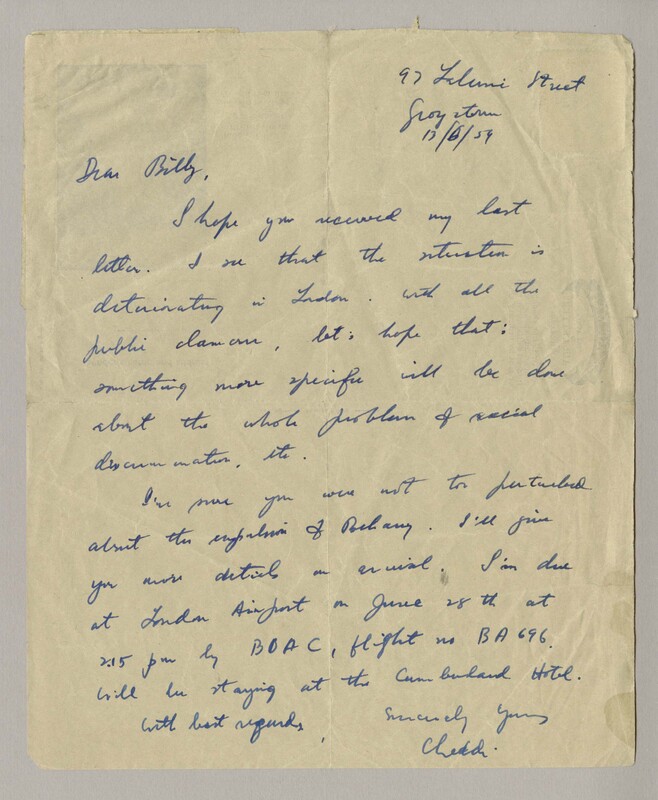 97 Laluni Street
Georgetown
13/6/59
Dear Billy,
I hope you received my last
letter. I see that the situation is
deteriorating in London. With all the
public clamour, let's hope that
something more specific will be done
about the whole problem of racial
discrimination, etc.
I'm sure you were not too perturbed
about the expulsion of
I'll give
you more details on arrival. I'm due
at London Airport on June 28th at
2.15 pm by BOAC, flight no BA 696.
Will be staying at the Cumberland Hotel.
With best regards,
Sincerely Yours
Cheddi.